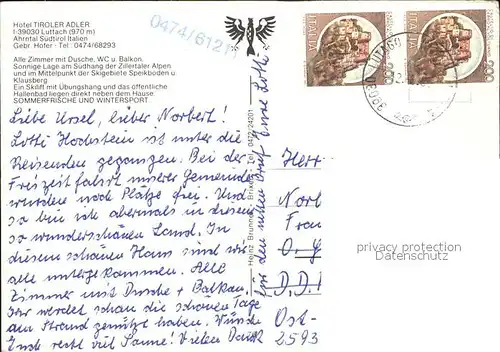 Hotel TIROLER ADLER
I-39030 Luttach (970 m)
Ahrntal Südtirol Italien
Gebr. Hofer · Tel : 0474/68293
0474/61211
Alle Zimmer mit Dusche, WC u. Balkon.
Sonnige Lage am Südhang der Zillertaler Alpen
und im Mittelpunkt der Skigebiete Speikboden u.
Klausberg
Ein Skilift mit Übungshang und das öffentliche
Hallenbad liegen direkt neben dem Hause.
SOMMERFRISCHE UND WINTERSPORT
Liebe Ursel, lieber Norbert!
Lotti Hochstein ist unter die
Reisenden gegangen. Bei der
Freizeitfahrt unserer Gemeinde
wurden noch Plätze frei. Und
so bin ich abermals in diesem
so wunderschönen Land. In
diesem schönen Haus sind wir
alle untergekommen. Alle
Zimmer mit Dusche + Balkon.
Ihr werdet schon die schönen Tage
am Strand genützt haben. Wünsche
Euch recht viel Sonne! Vielen Dank
für den netten Brief Eure Lotti
Heinz Brunner, Brixen Tel. 0472/24201
ITALIA
ITALIA
39030 LUTAGO
Herr
Nor
Frau
O. G
D.D.
Ost-
2593
privacy protection
Datenschutz